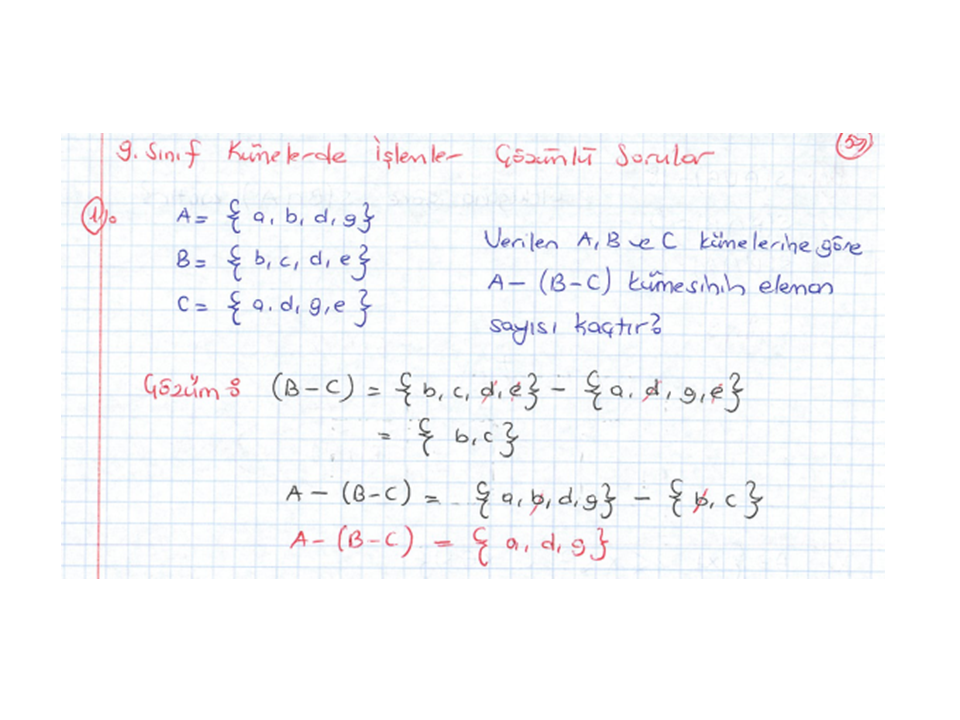 9. Sınıf Kümelerde İşlemler Çözümlü Sorular
59
1)
A = { a, b, d, g}
B = { b, c, d, e}
C = { a, d, g, e }
Verilen A, B ve C kümelerine göre
A - (B-C) kümesinin eleman
sayısı kaçtır?
Çözüm: (B-C) = { b, c, d, e} - { a, d, g, e}
= { b, c }
A - (B-C) = { a, b, d, g} - { b, c }
A - (B-C) = { a, d, g}